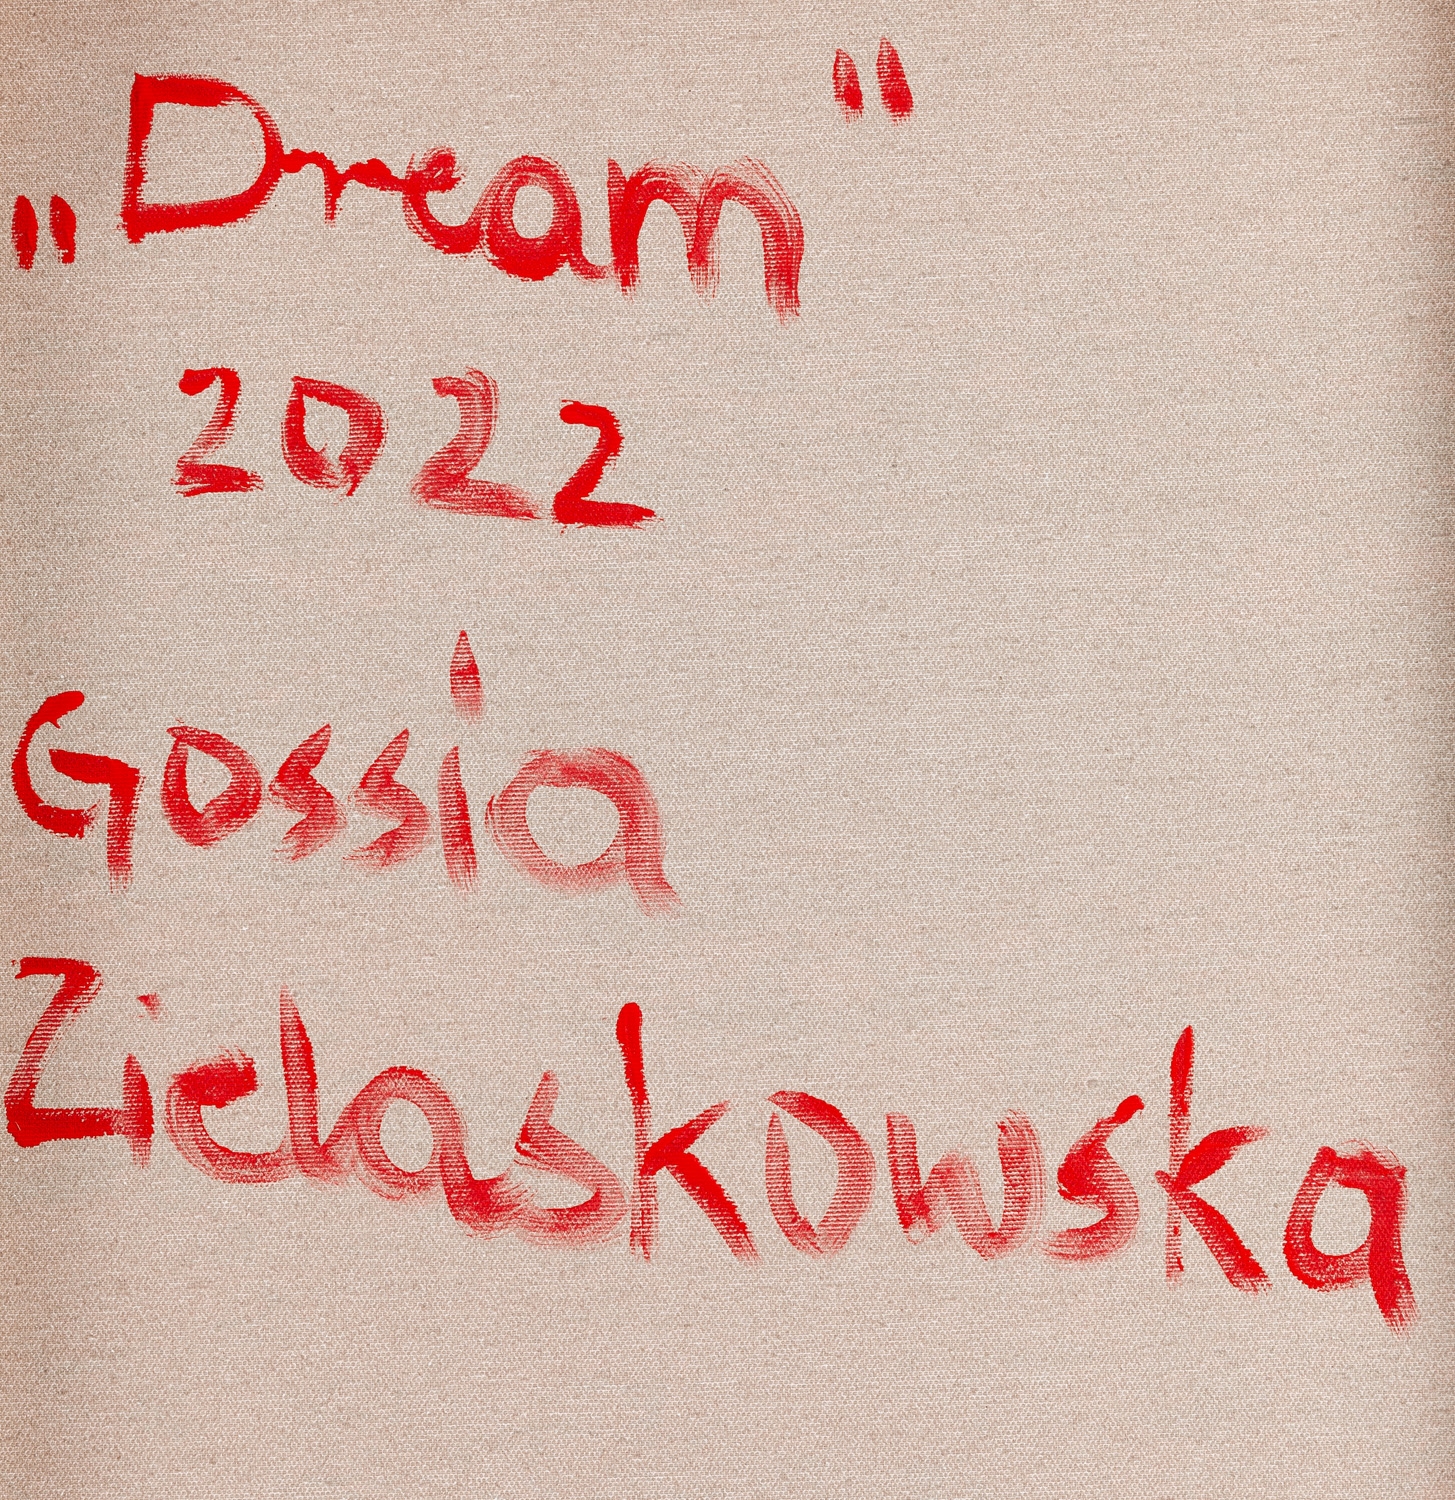 „Dream"
2022
Gossia
Zielaskowska